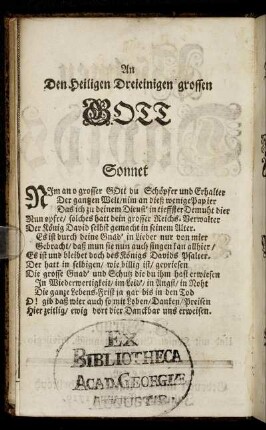 An
Den Heiligen Dreieinigen grossen
GOTT
Sonnet
NIm an o grosser GOtt du Schöpfer und Erhalter
Der gantzen Welt/nim an dieß wenige Papier
Das ich zu deinem Dienst in tieffster Demuht dier
Nun opfre/ solches hatt dein grosser Reichs-Verwalter
Der König David selbst gemacht in seinem Alter.
Es ist durch deine Gnad' in Lieder nur von mier
Gebracht/ daß mun sie nun auch singen kan allhier/
Es ist und bleibet doch des Königs Davids Psalter.
Der hatt in selbigen/ wie billig ist/ gepriesen
Die grosse Gnad' und Schutz die du ihm hast erwiesen
In Wiederwertigkeit/ im Leid/ in Angst/ in Noht
Die gantze Lebens-Frist ja gar bis in den Tod
O! gib daß wier auch so mit Loben/Danken/Preisen
Hier zeitlig/ ewig dort dier Danckbar uns erweisen.
EX
BIBLIOTHECA
ACAD. GEORGIÆ
AUGUSTÆ